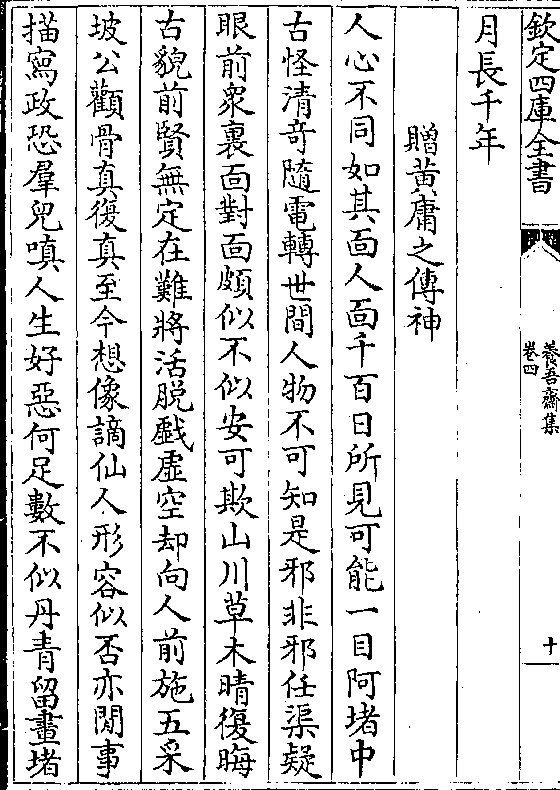 欽定四庫全書
養吾齋集
卷四
十
月長千年
贈黃庸之傳神
人心不同如其面人面千百日所見可能一目阿堵中
古怪清奇隨電轉世間人物不可知是邪非邪任渠疑
眼前衆裏面對面頗似不似安可欺山川草木晴復晦
古貌前賢無定在難將活脱戲虛空却向人前施五采
坡公顴骨真復真至今想像謫仙人形容似否亦閒事
描寫政恐羣兒嗔人生好惡何足數不似丹青留畫堵